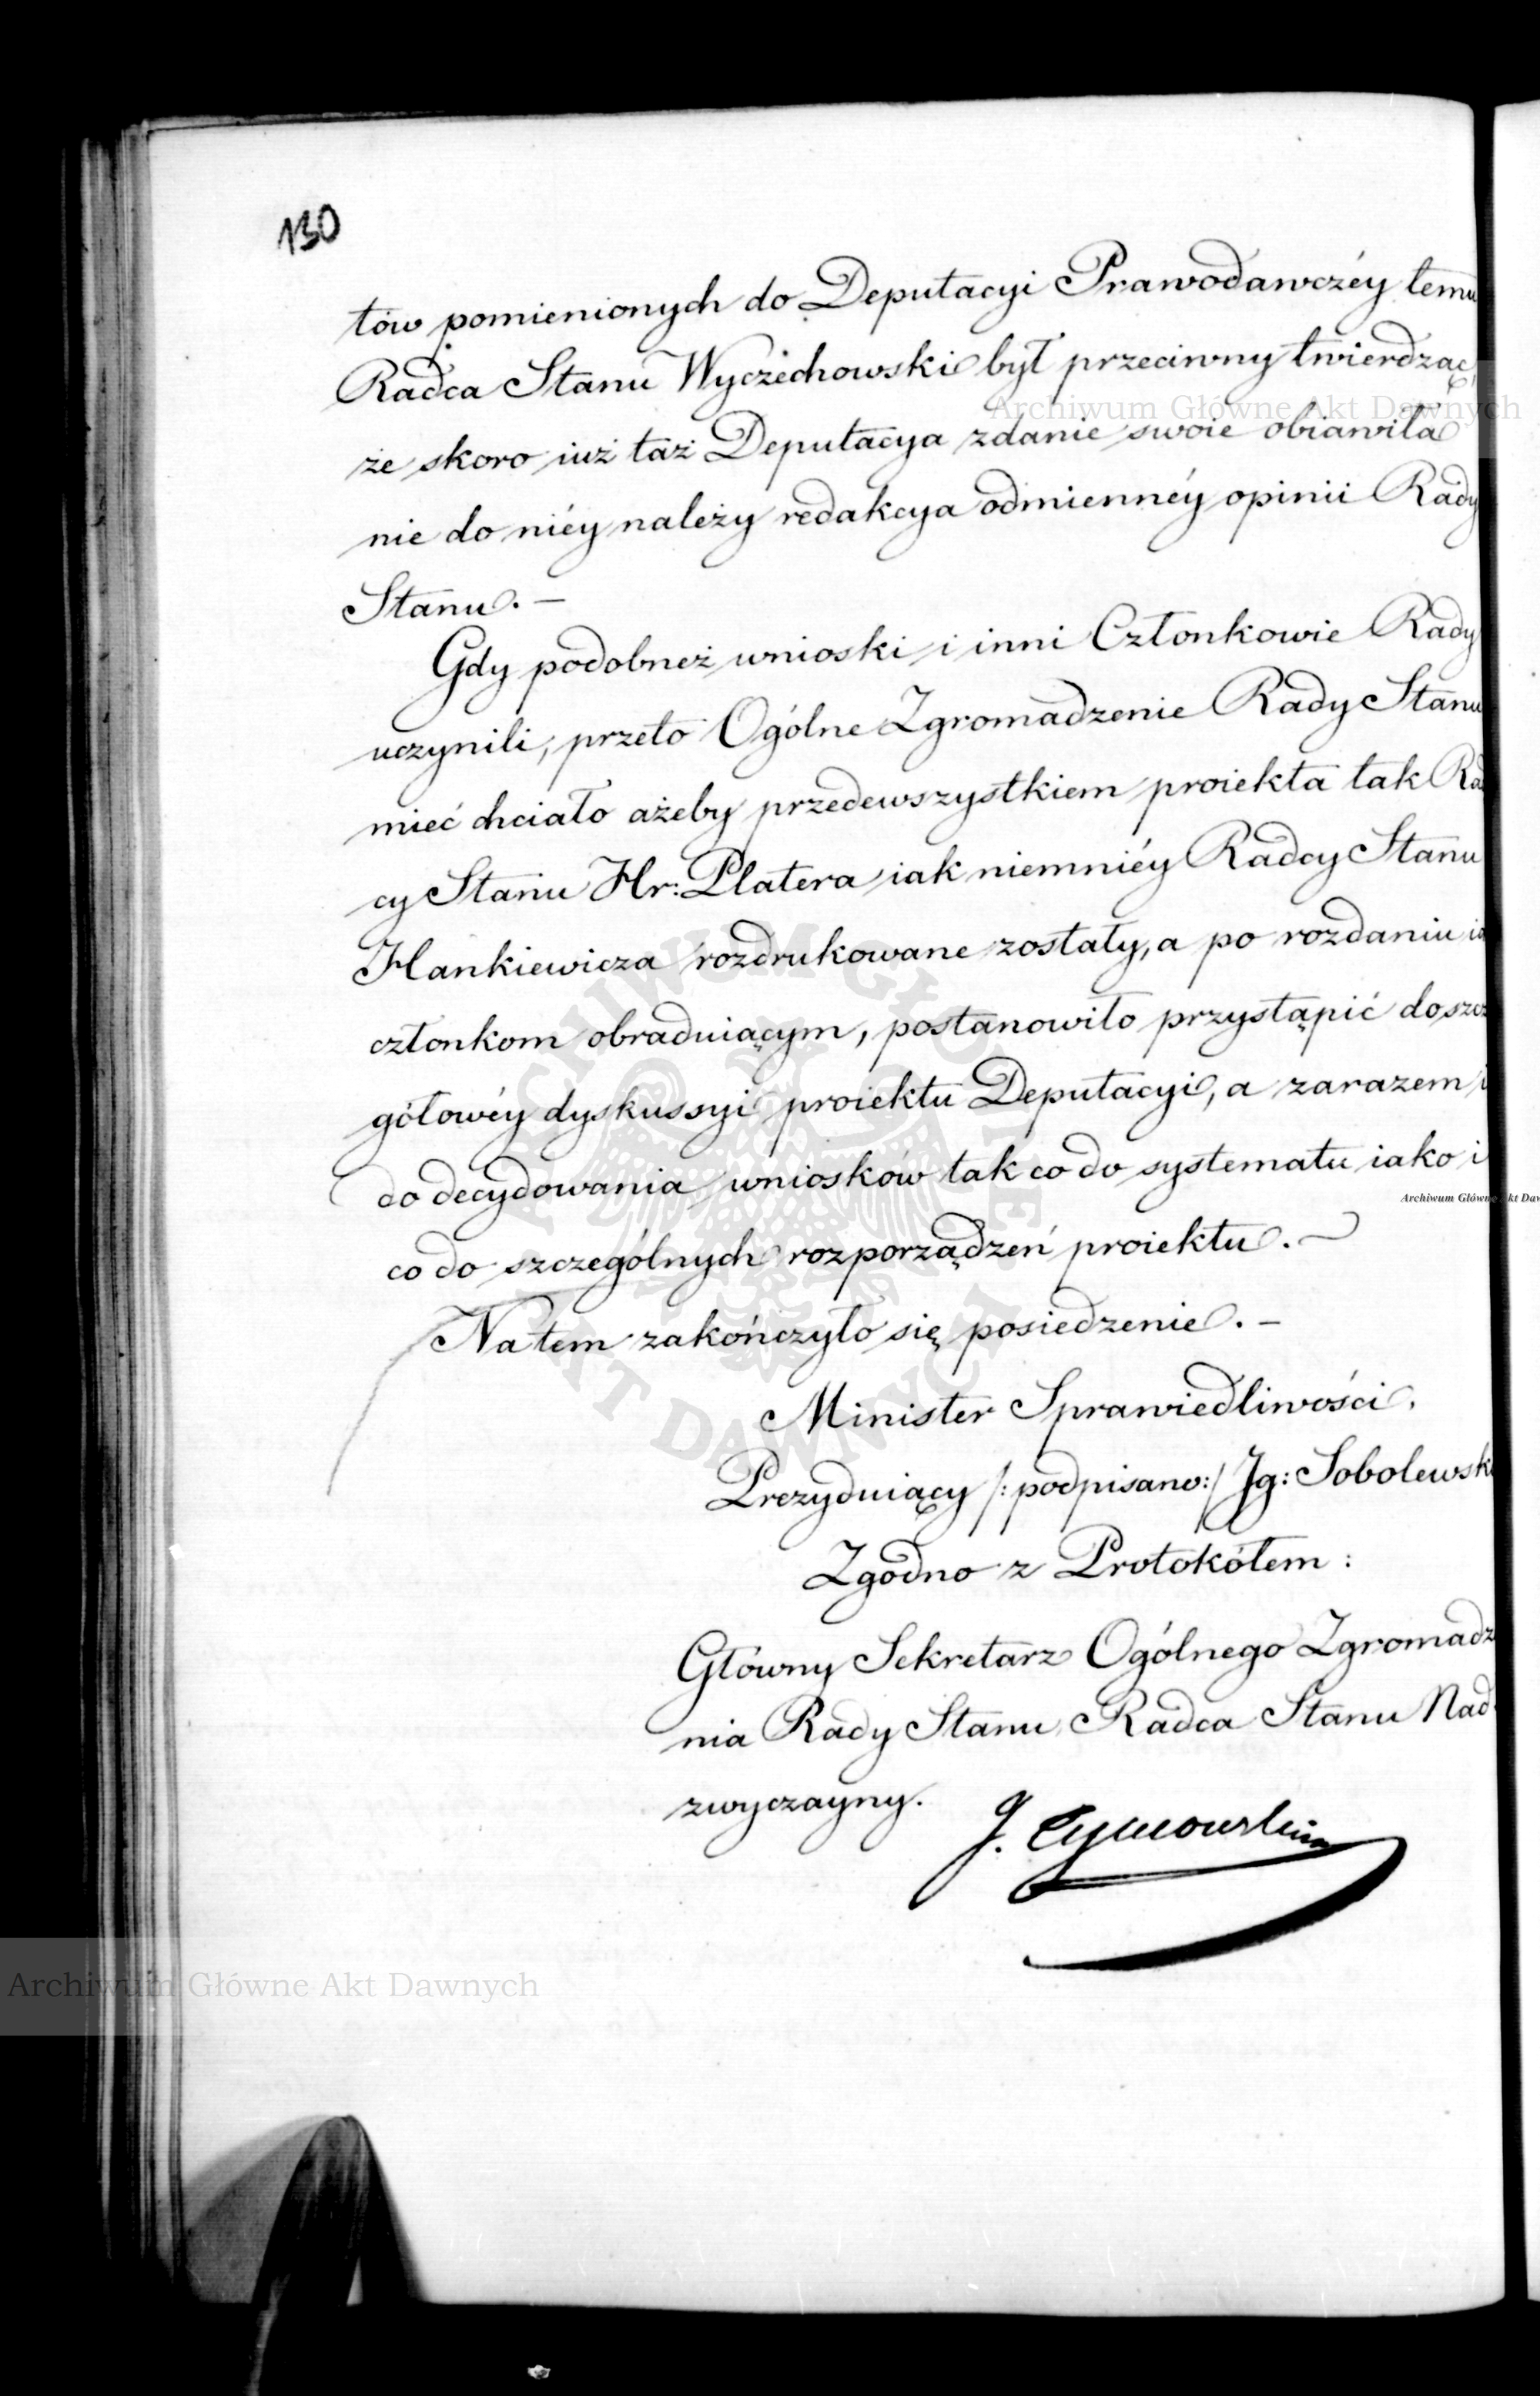 130
tów pomienionych do Deputacyi Prawodawczéy temu
Radca Stanu Wyczechowski był przeciwny twierdząc,
że skoro iuż taż Deputacya zdanie swoie obiawiła
nie do niéy należy redakcya odmiennéy opinii Rady
Stanu. —
Gdy podobneż wnioski i inni Członkowie Rady
uczynili, przeto Ogólne Zgromadzenie Rady Stanu
mieć chciało ażeby przedewszystkiem proiekta tak Rad
cy Stanu Hr: Platera iak niemniéy Radcy Stanu
Hankiewicza rozdrukowane zostały, a po rozdaniu
członkom obraduiącym, postanowiło przystąpić do szcz
gółowéy dyskussyi proiektu Deputacyi, a zarazem i
do decydowania wniosków tak co do systematu iako i
co do szczególnych rozporządzeń proiektu. —
Na tem zakończyło się posiedzenie. —
Minister Sprawiedliwości.
Prezyduiący /: podpisano:/ Jg: Sobolewski
Zgodno z Protokółem:
Główny Sekretarz Ogólnego Zgromadze
nia Rady Stanu, Radca Stanu Nad
zwyczayny.
J. Tymowski
Archiwum Główne Akt Dawnych
Archiwum Główne Akt Dawnych
Archiwum Główne Akt Daw
ARCHIWUM GŁÓWNE AKT DAWNYCH